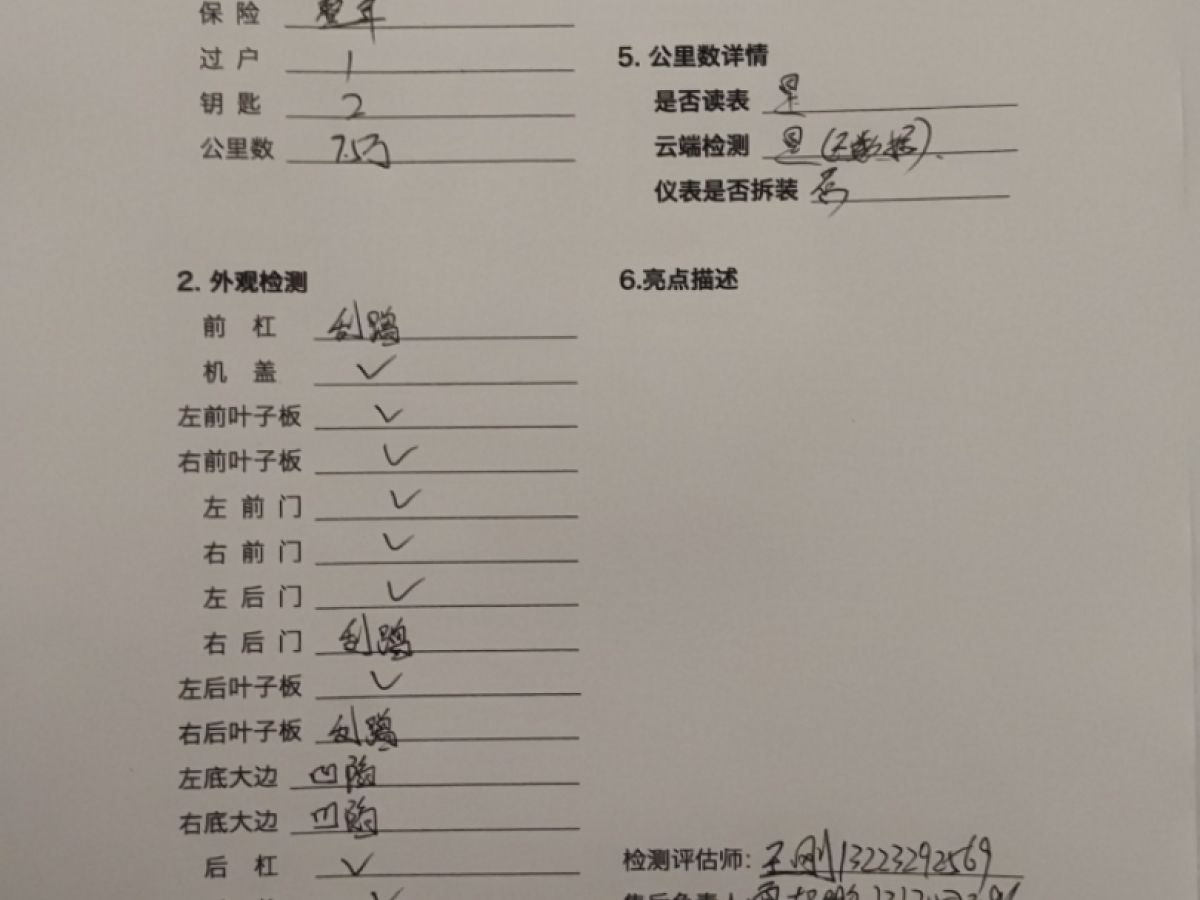 保险 整年
过户 1
钥匙 2
公里数 7.5万
2. 外观检测
前杠 刮蹭
机盖 ✓
左前叶子板 ✓
右前叶子板 ✓
左前门 ✓
右前门 ✓
左后门 ✓
右后门 刮蹭
左后叶子板 ✓
右后叶子板 刮蹭
左底大边 凹陷
右底大边 凹陷
后杠 ✓
5. 公里数详情
是否读表 是
云端检测 是(无数据)
仪表是否拆装 否
6.亮点描述
检测评估师: 王刚 13223292569
售后负责人: